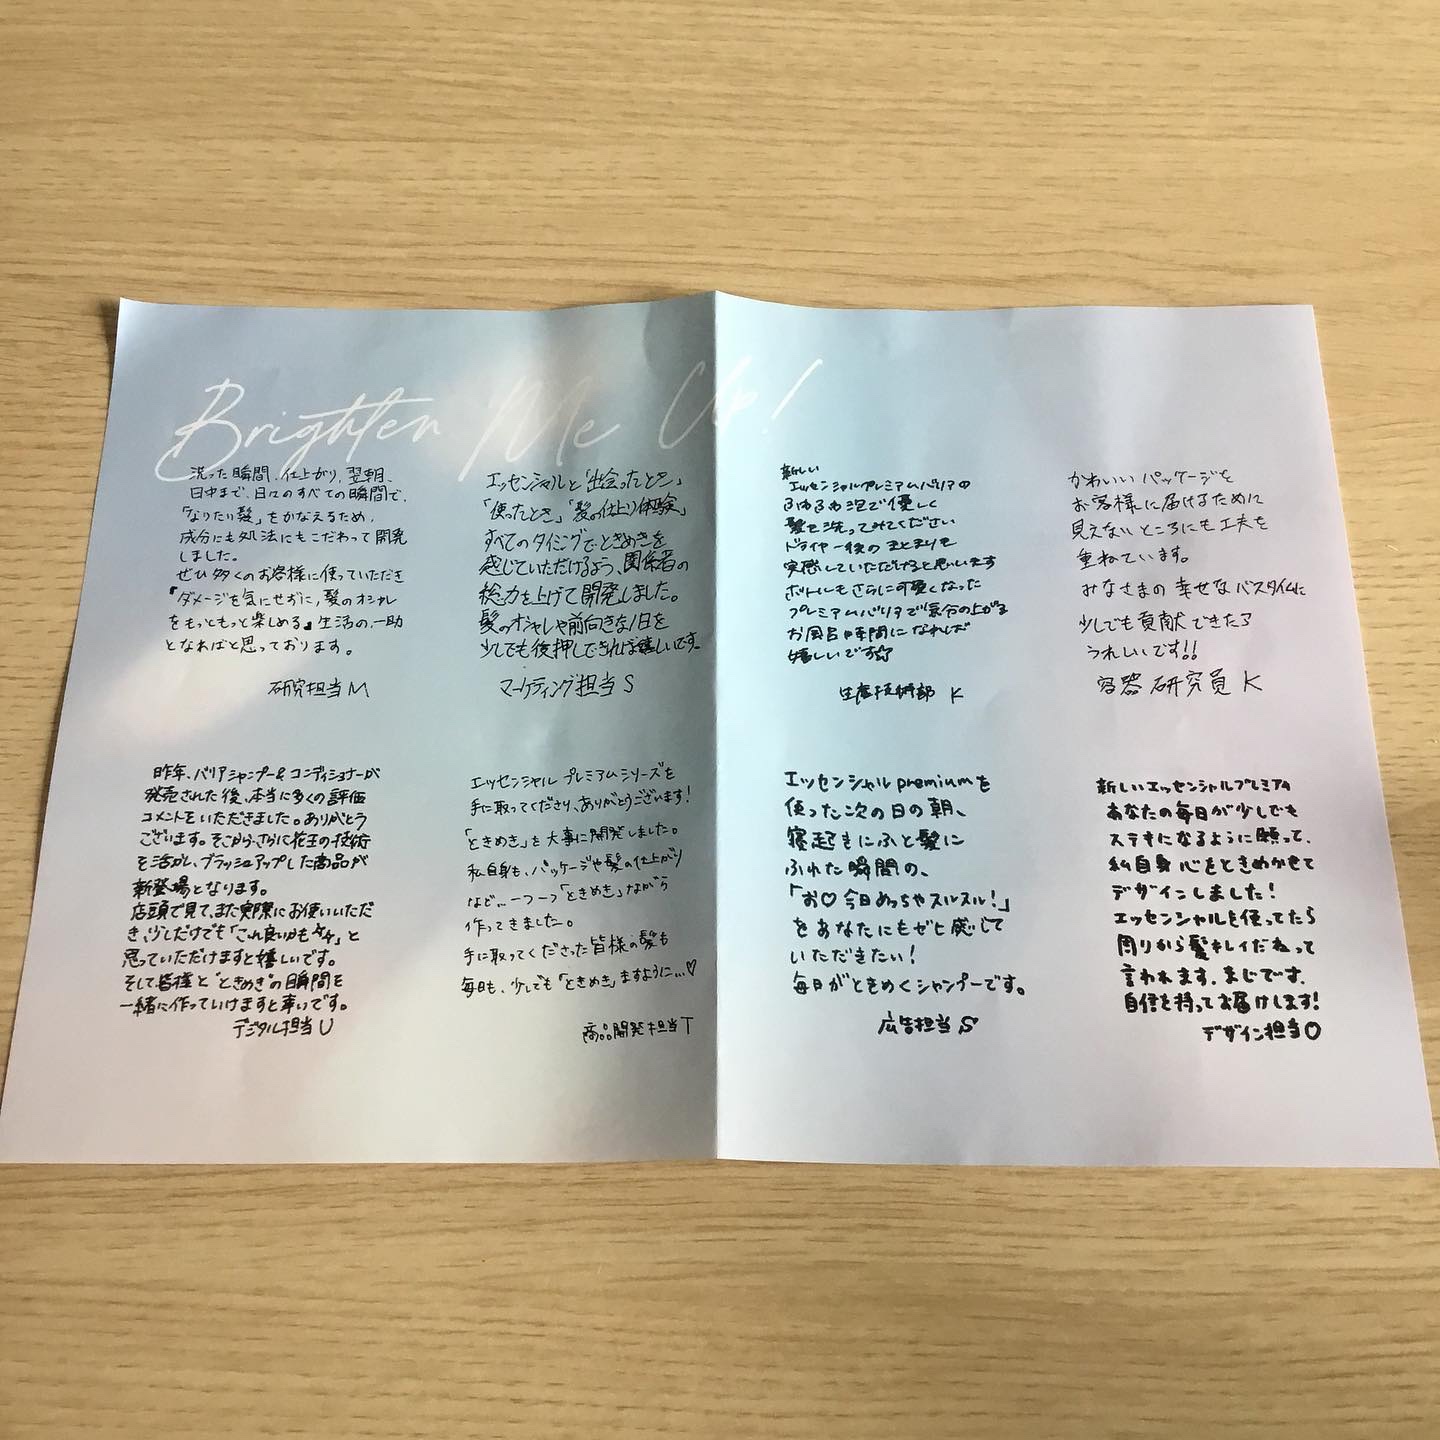 Brighten Me Up!
洗った瞬間、仕上がり、翌朝、
日中まで、日々のすべての瞬間で、
「なりたい髪」をかなえるため、
成分にも処法にもこだわって開発
しました。
ぜひ多くのお客様に使っていただき
『ダメージを気にせずに、髪のオシャレ
をもっともっと楽しめる』生活の一助
となればと思っております。
研究担当M
エッセンシャルと「出会ったとき」
「使ったとき」「髪の仕上り体験」
すべてのタイミングでときめきを
感じていただけるよう、関係者の
総力を上げて開発しました。
髪のオシャレや前向きな1日を
少しでも後押しできれば嬉しいです。
マーケティング担当S
新しい
エッセンシャルプレミアムバリアの
ふわふわ泡で優しく
髪を洗ってみてください
ドライヤー後のまとまりを
実感していただけると思います
ボトルもさらに可愛くなった
プレミアムバリアで気分の上がる
お風呂時間になれば
嬉しいです
生産技術部 K
かわいいパッケージを
お客様に届けるために
見えないところにも工夫を
重ねています。
みなさまの幸せなバスタイムに
少しでも貢献できたら
うれしいです!!
容器研究員 K
昨年、バリアシャンプー&コンディショナーが
発売された後、本当に多くの評価
コメントをいただきました。ありがとう
ございます。そこから、さらに花王の技術
を活かし、ブラッシュアップした商品が
新登場となります。
店頭で見て、また実際にお使いいただ
き、少しだけでも「これ良いかも」と
思っていただけますと嬉しいです。
そして皆様と"ときめき"の瞬間を
一緒に作っていけますと幸いです。
デジタル担当U
エッセンシャルプレミアムシリーズを
手に取ってくださり、ありがとうございます!
「ときめき」を大事に開発しました。
私自身も、パッケージや髪の仕上がり
など…一つ一つ「ときめき」ながら
作ってきました。
手に取ってくださった皆様の髪も
毎日も、少しでも「ときめき」ますように…♡
商品開発担当T
エッセンシャルpremiumを
使った次の日の朝、
寝起きにふと髪に
ふれた瞬間の、
「お♡今日めっちゃスルスル!」
をあなたにもぜヒ感じて
いただきたい!
毎日がときめくシャンプーです。
広告担当S
新しいエッセンシャルプレミアム
あなたの毎日が少しでも
ステキになるように願って、
私自身心をときめかせて
デザインしました!
エッセンシャルを使ってたら
周りから髪キレイだねって
言われます。まじです。
自信を持ってお届けします!
デザイン担当O